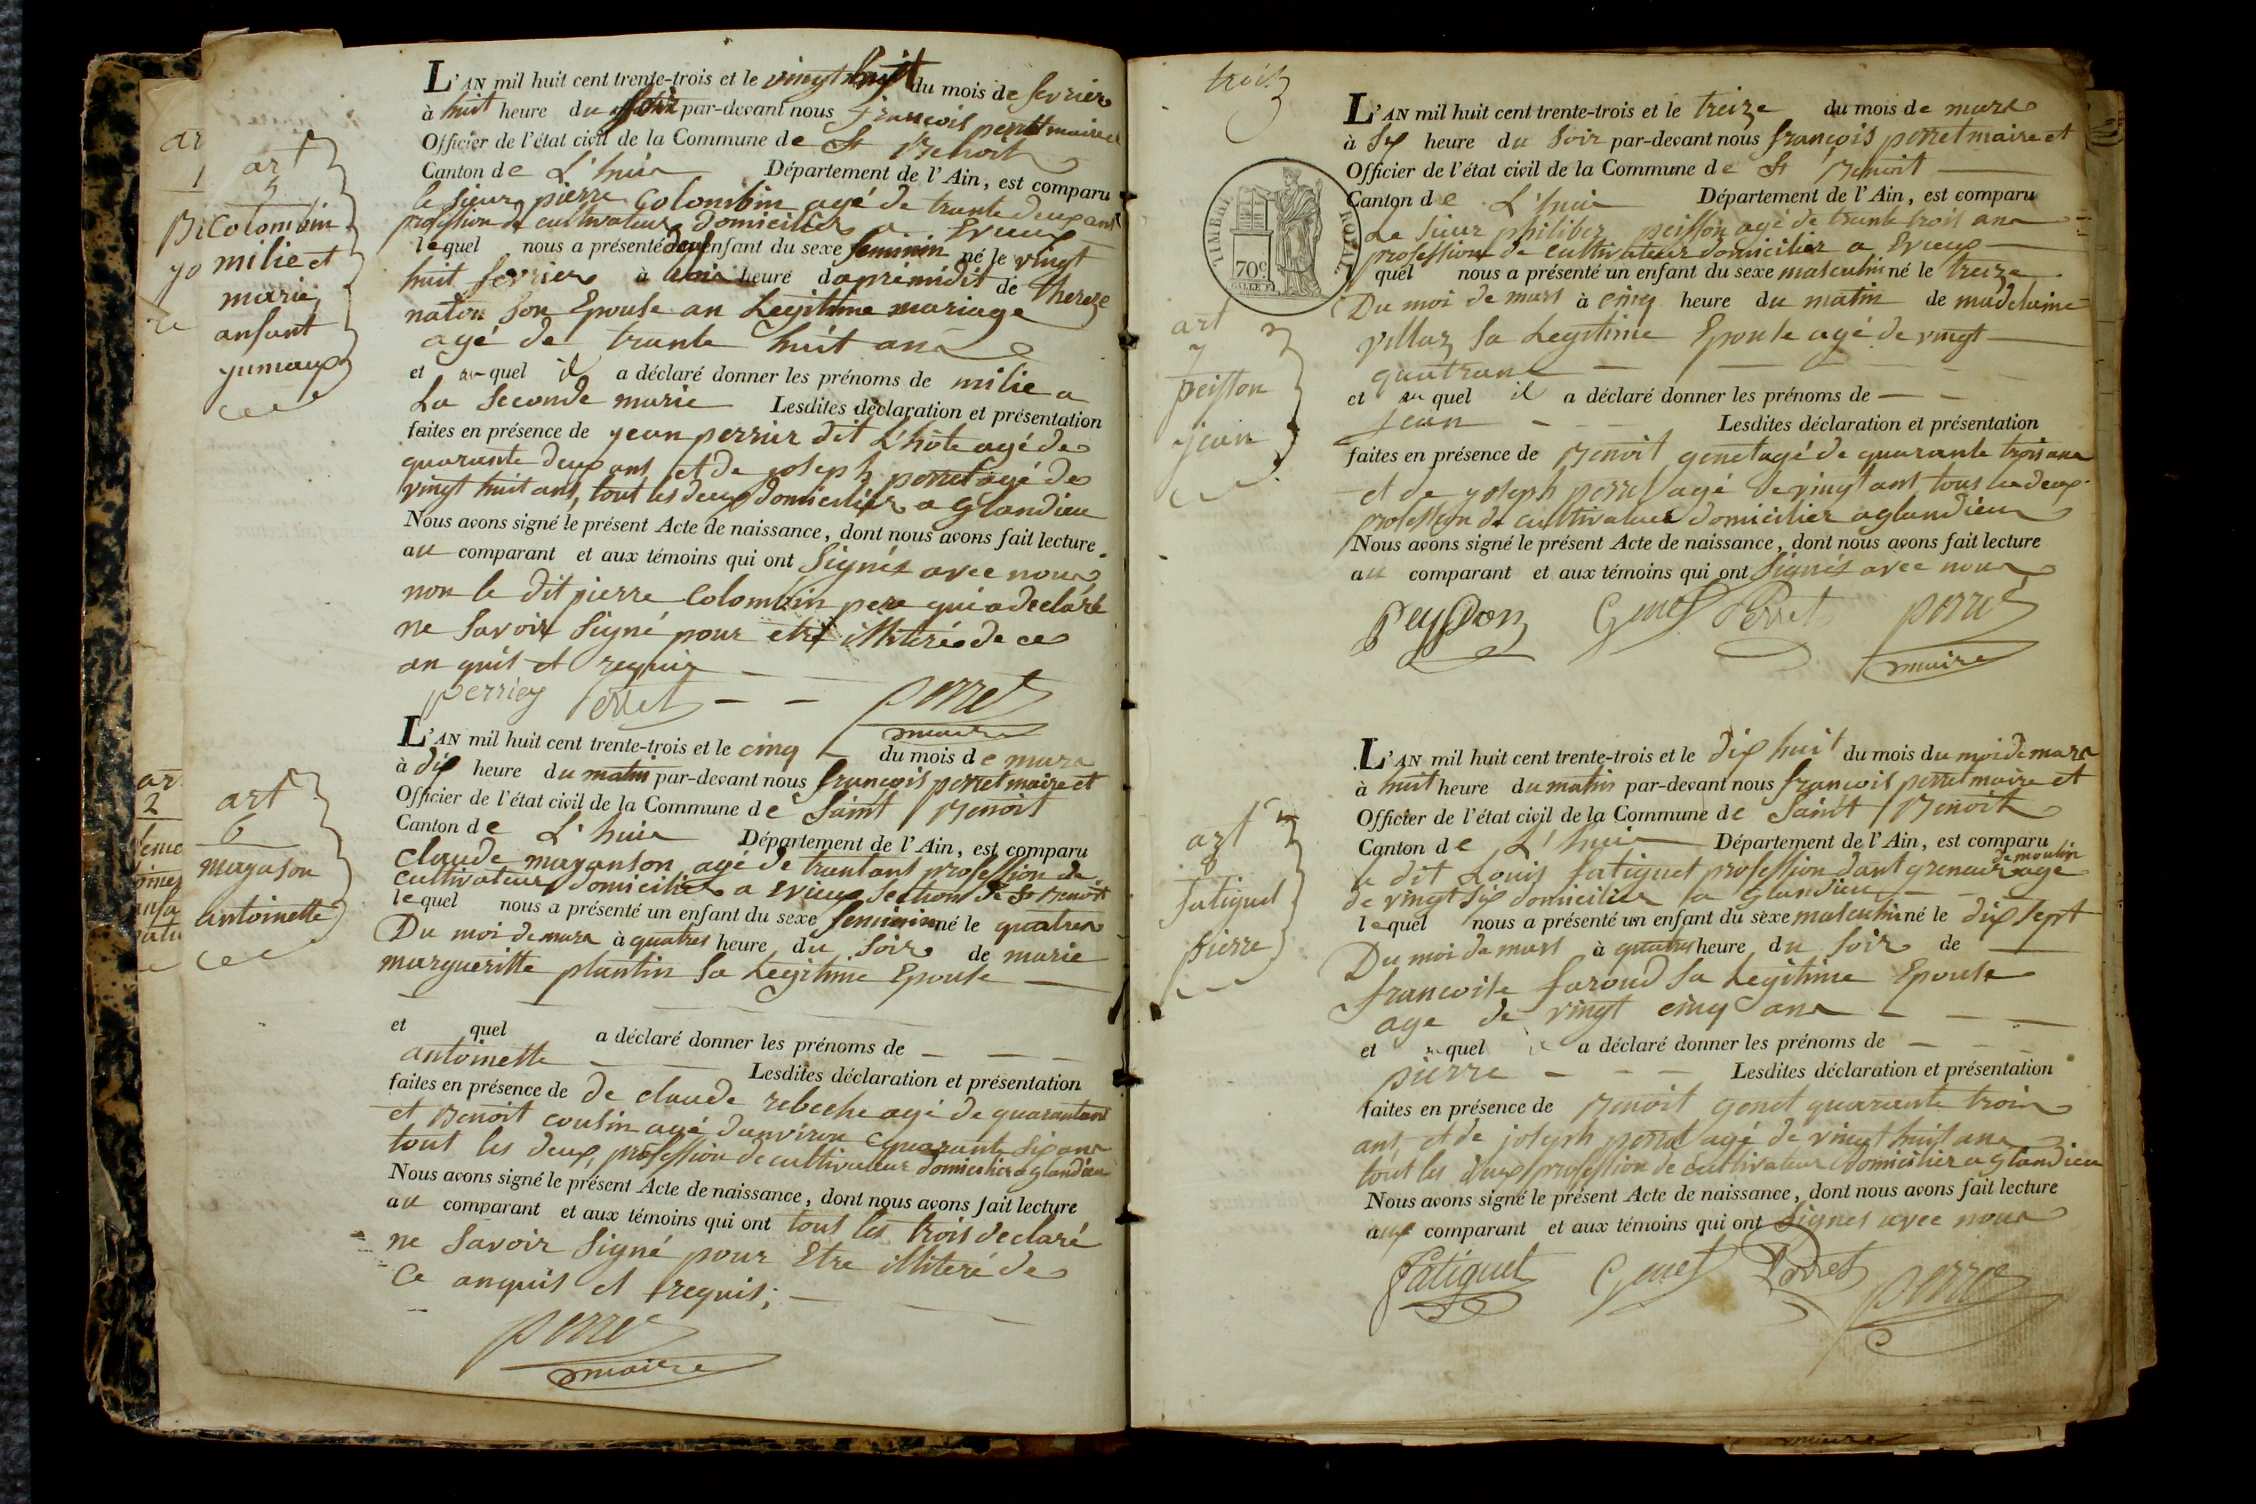 art
5
Colombin
milie et
marie
anfant
jumaux
L'AN mil huit cent trente-trois et le vingt huit du mois de fevrier
à huit heure du soir par-devant nous françois perret maire et
Officier de l'état civil de la Commune de St Benoit
Canton de L'huis Département de l'Ain, est comparu
le sieur pierre Colombin agé de trante deux ans
profession de cultivateur domicilier a Evieux
lequel nous a présenté deux enfant du sexe feminin né le vingt
huit fevrier à heure d aprimidit de thereze
naton son Epouse an Legitime mariage
agé de trante huit ans
et au quel il a déclaré donner les prénoms de milie a
La seconde marie Lesdites déclaration et présentation
faites en présence de jean perrier dit L'hôte agé de
quarante deux ans et de joseph perret agé de
vingt huit ans, tout les deux domicilier a glandieu
Nous avons signé le présent Acte de naissance, dont nous avons fait lecture
au comparant et aux témoins qui ont signés avec nous
non le dit pierre Colombin pere qui a declaré
ne savoir signé pour etre illiteré de ce
an quis et requis
perrier Perret perret
maire
art
6
mayason
antoinette
L'AN mil huit cent trente-trois et le cinq du mois de mars
à dix heure du matin par-devant nous françois perret maire et
Officier de l'état civil de la Commune de Saint Benoit
Canton de L'huis Département de l'Ain, est comparu
claude mayanson agé de trantans profession de
cultivateur domicilier a Evieux section de St Benoit
lequel nous a présenté un enfant du sexe feminin né le quatres
Du moi de mars à quatres heure du soir de marie
margueritte plantin sa Legitime Epouse
et quel a déclaré donner les prénoms de
antoinette Lesdites déclaration et présentation
faites en présence de de claude rebeche agé de quarantans
et Benoit cousin agé danviron quarante six ans
tout les deux profession de cultivateur domicilier a glandieu
Nous avons signé le présent Acte de naissance, dont nous avons fait lecture
au comparant et aux témoins qui ont tout les trois declaré
ne savoir signé pour Etre illiteré de
Ce anquis et requis;
perret
maire
trois
TIMBRE ROYAL
70c
art
7
peisson
jean
L'AN mil huit cent trente-trois et le treize du mois de mars
à six heure du soir par-devant nous françois perret maire et
Officier de l'état civil de la Commune de St Benoit
Canton de L'huis Département de l'Ain, est comparu
Le sieur philiber peisson agé de trante trois ans
profession de cultivateur domicilier a Evieux
quel nous a présenté un enfant du sexe masculin né le treize
Du moi de mars à cinq heure du matin de madelaine
villaz sa Legitime Epouse agé de vingt
quatrans
et au quel il a déclaré donner les prénoms de
jean Lesdites déclaration et présentation
faites en présence de Benoit genet agé de quarante trois ans
et de joseph perret agé de vingt ans tous les deux
profession de cultivateur domicilier a glandieu
Nous avons signé le présent Acte de naissance, dont nous avons fait lecture
au comparant et aux témoins qui ont signés avec nous
Peysson Genet Perret perret
maire
art
8
fatiguet
pierre
L'AN mil huit cent trente-trois et le dix huit du mois du moi de mars
à huit heure du matin par-devant nous françois perret maire et
Officier de l'état civil de la Commune de Saint Benoit
Canton de L'huis Département de l'Ain, est comparu
le dit Louis fatiguet profession dant grenaur de moulin age
de vingt six domicilier a glandieu
lequel nous a présenté un enfant du sexe masculin né le dix sept
Du moi de mars à quatres heure du soir de
francoise faroud sa Legitime Epouse
age de vingt cinq ans
et au quel il a déclaré donner les prénoms de
pierre Lesdites déclaration et présentation
faites en présence de Benoit genet quarante trois
ans et de joseph perret agé de vingt huit ans
tout les deux profession de cultivateur domicilier a glandieu
Nous avons signé le présent Acte de naissance, dont nous avons fait lecture
aux comparant et aux témoins qui ont signes avec nous
Fatiguet Genet Perret perret